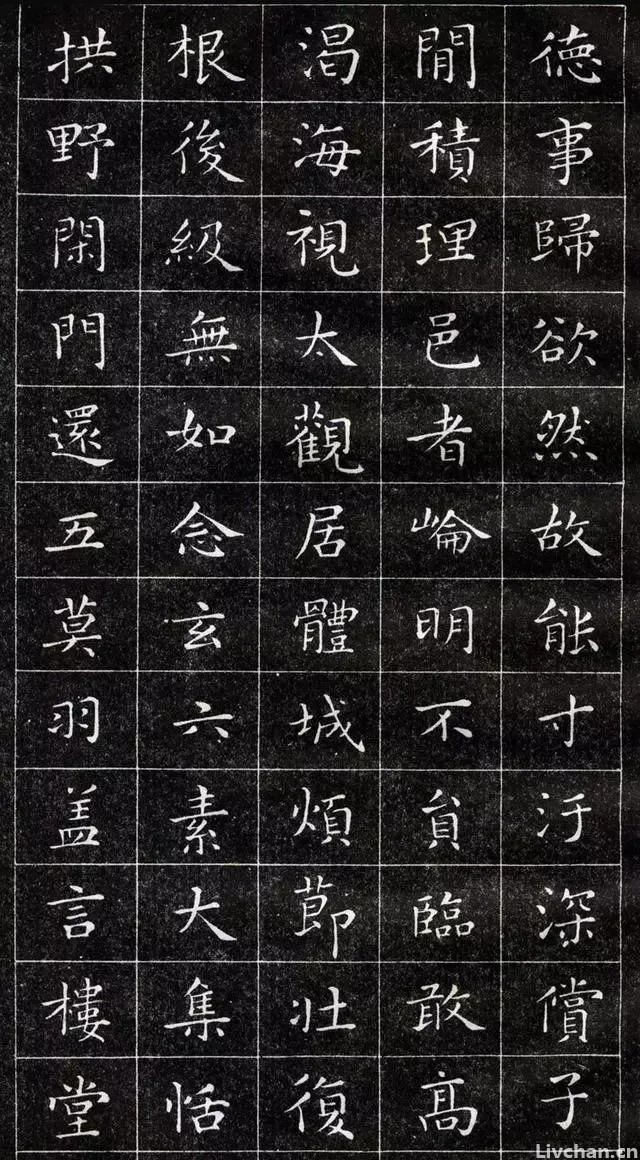 德事歸欲然故能寸汙深償子
閒積理邑者崘明不貟臨敢髙
渴海視太觀居體城煩莭壯復
根後級無如念玄六素大集恬
拱野閑門還五莫羽盖言樓堂
Livchan.cn